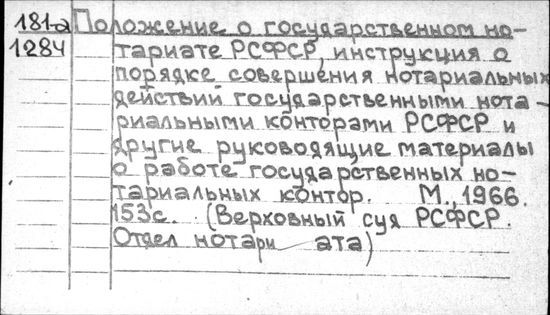 181-а Положение о государственном но-
1284 тариате РСФСР, инструкция о
порядке совершения нотариальных
действий государственными нота-
риальными конторами РСФСР и
другие руководящие материалы
о работе государственных но-
тариальных контор. М., 1966.
153с. (Верховный суд РСФСР.
Отдел нотари ата)